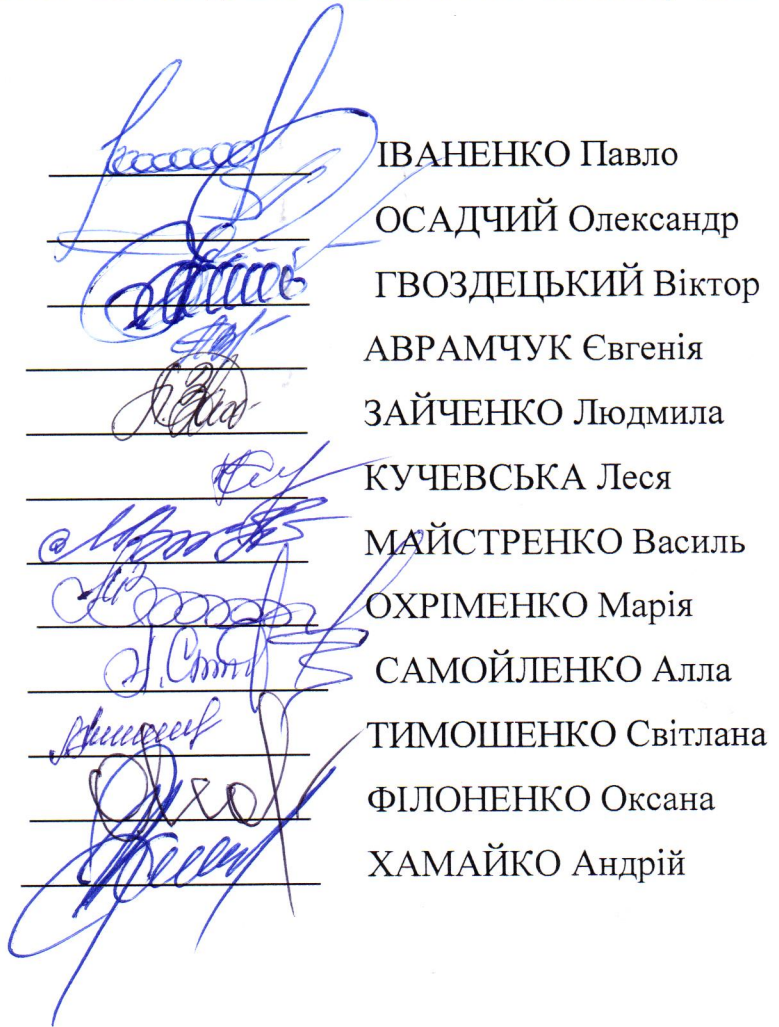 ІВАНЕНКО Павло
ОСАДЧИЙ Олександр
ГВОЗДЕЦЬКИЙ Віктор
АВРАМЧУК Євгенія
ЗАЙЧЕНКО Людмила
КУЧЕВСЬКА Леся
МАЙСТРЕНКО Василь
ОХРІМЕНКО Марія
САМОЙЛЕНКО Алла
ТИМОШЕНКО Світлана
ФІЛОНЕНКО Оксана
ХАМАЙКО Андрій